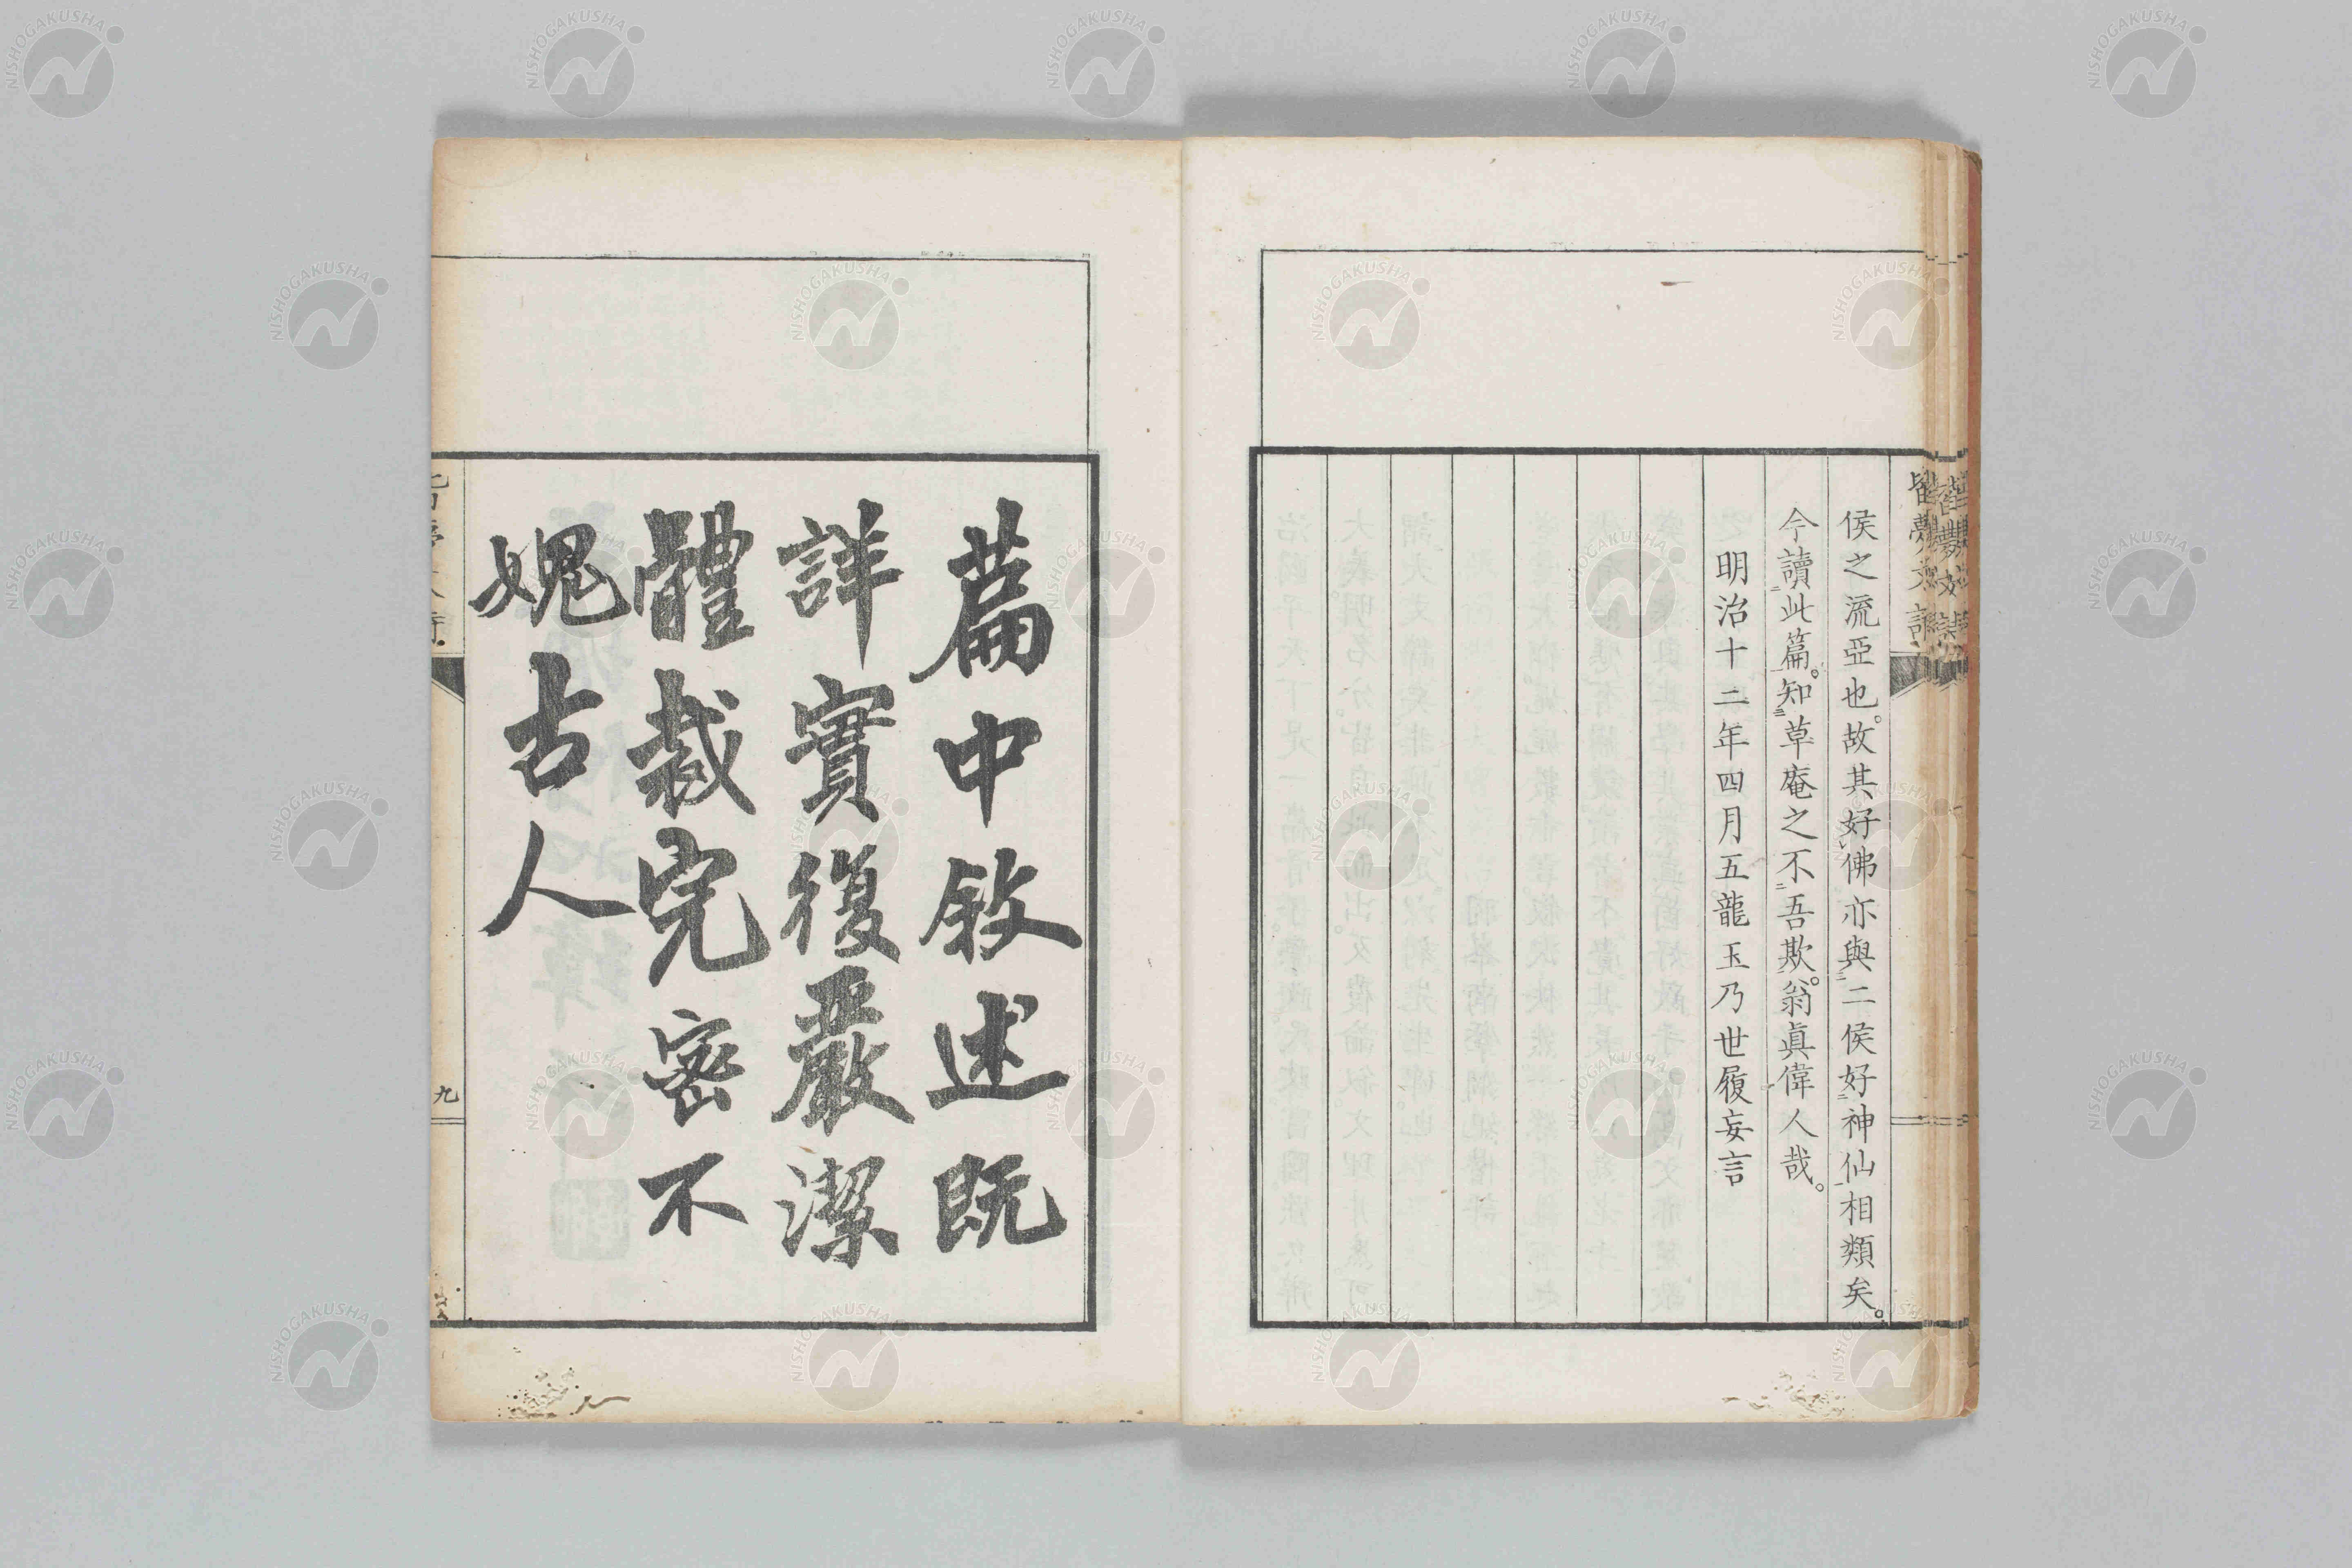 侯之流亞也。故其好佛亦與二侯好神仙相類矣。
今讀此篇。知草庵之不吾欺。翁眞偉人哉。
明治十二年四月五龍玉乃世履妄言
篇中敘述既
詳實復嚴潔
體裁完密不
媿古人
九
NISHOGAKUSHA